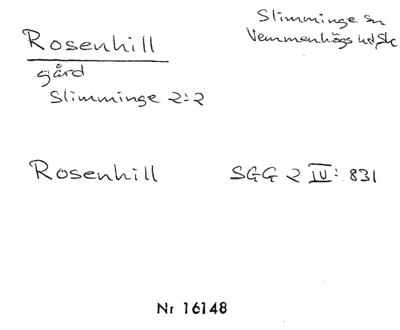 Rosenhill
gård
Slimminge 2:2
Slimminge sn
Vemmenhögs hd Sk
Rosenhill
SGG 2 IV: 831
Nr 16148